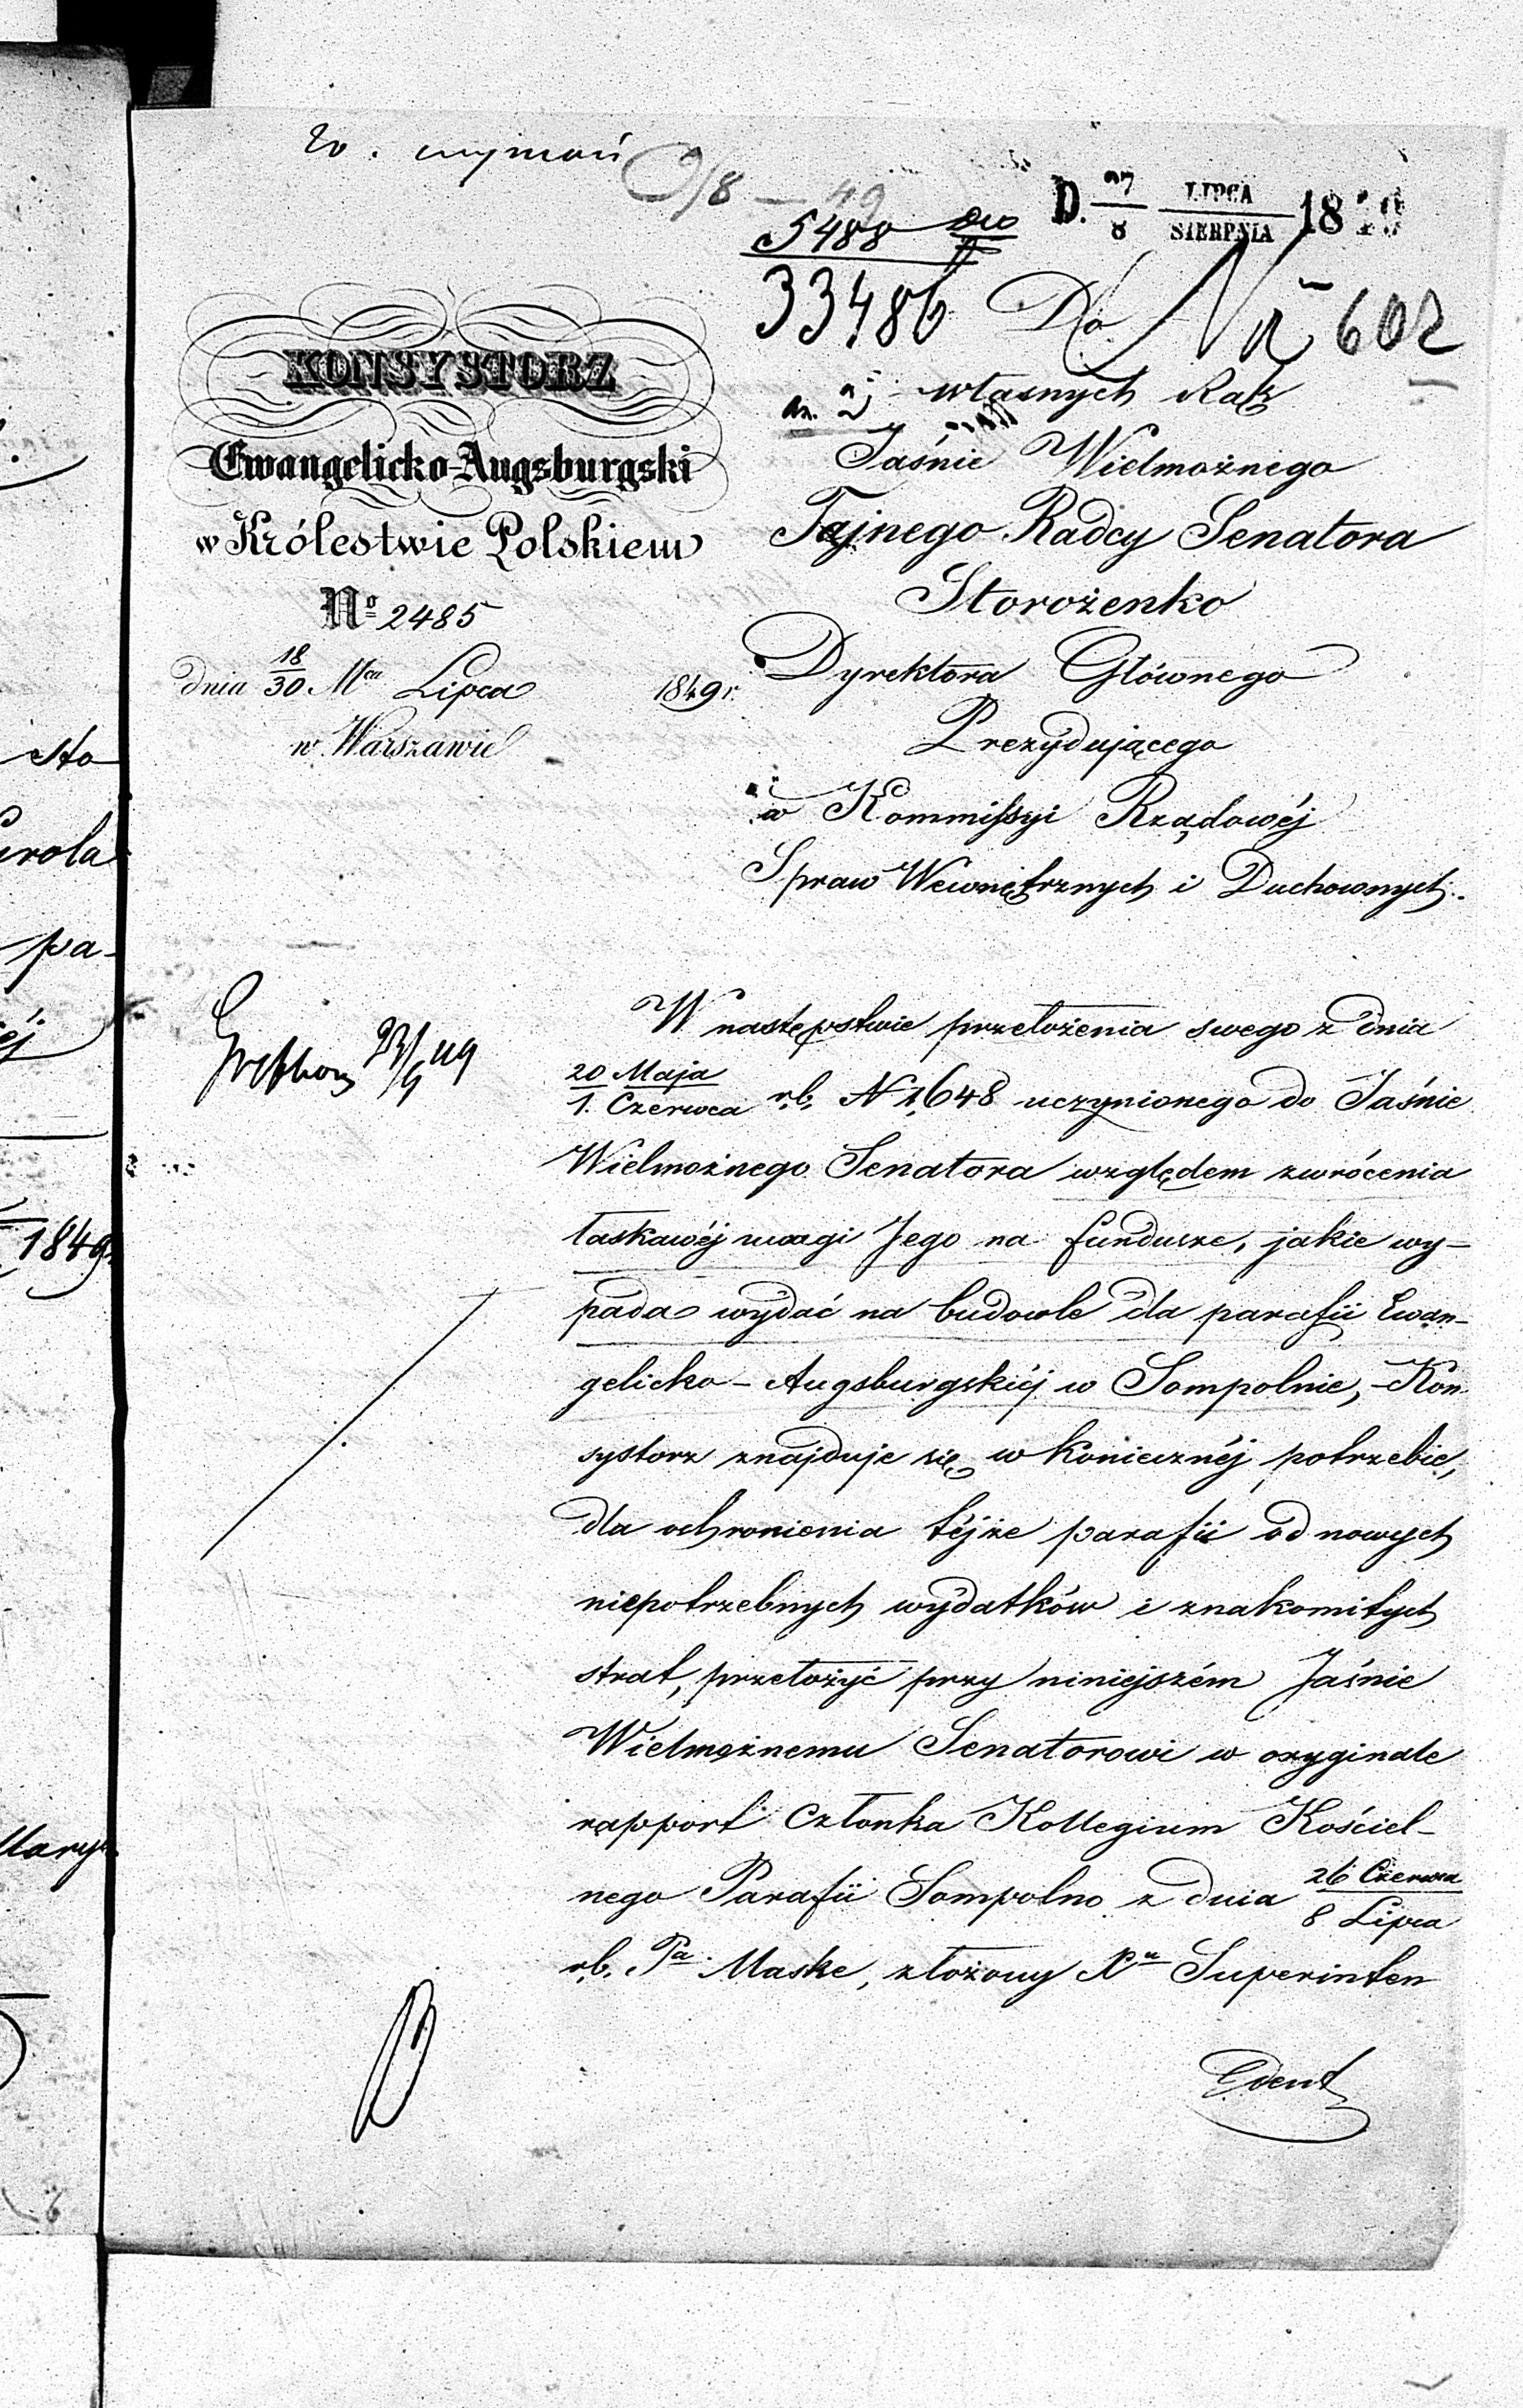 9/8 – 49
D. 27/8 LIPCA/SIERPNIA 1849
5488
33486
Do
602
KONSYSTORZ
Ewangelicko-Augsburgski
w Królestwie Polskiem
No 2485
dnia 18/30 Mca Lipca 1849 r.
w Warszawie
własnych Rąk
Jaśnie Wielmożnego
Tajnego Radcy Senatora
Storożenko
Dyrektora Głównego
Prezydującego
w Kommissyi Rządowéj
Spraw Wewnętrznych i Duchownych.
W następstwie przełożenia swego z dnia
20 Maja/1. Czerwca r.b. N 1648 uczynionego do Jaśnie
Wielmożnego Senatora względem zwrócenia
łaskawéj uwagi Jego na fundusze, jakie wy-
pada wydać na budowle dla parafii Ewan-
gelicko-Augsburgskiéj w Sompolnie, – Kon
systorz znajduje się w koniecznéj potrzebie,
dla ochronienia téjże parafii od nowych
niepotrzebnych wydatków i znakomitych
strat, przełożyć przy niniejszém Jaśnie
Wielmożnemu Senatorowi w oryginale
rapport Członka Kollegium Kościel-
nego Parafii Sompolno z dnia 26 Czerwca/8 Lipca
r.b. Pa. Maske, złożony Xu Superinten
dent
sto
arola
pa-
éj
1849.